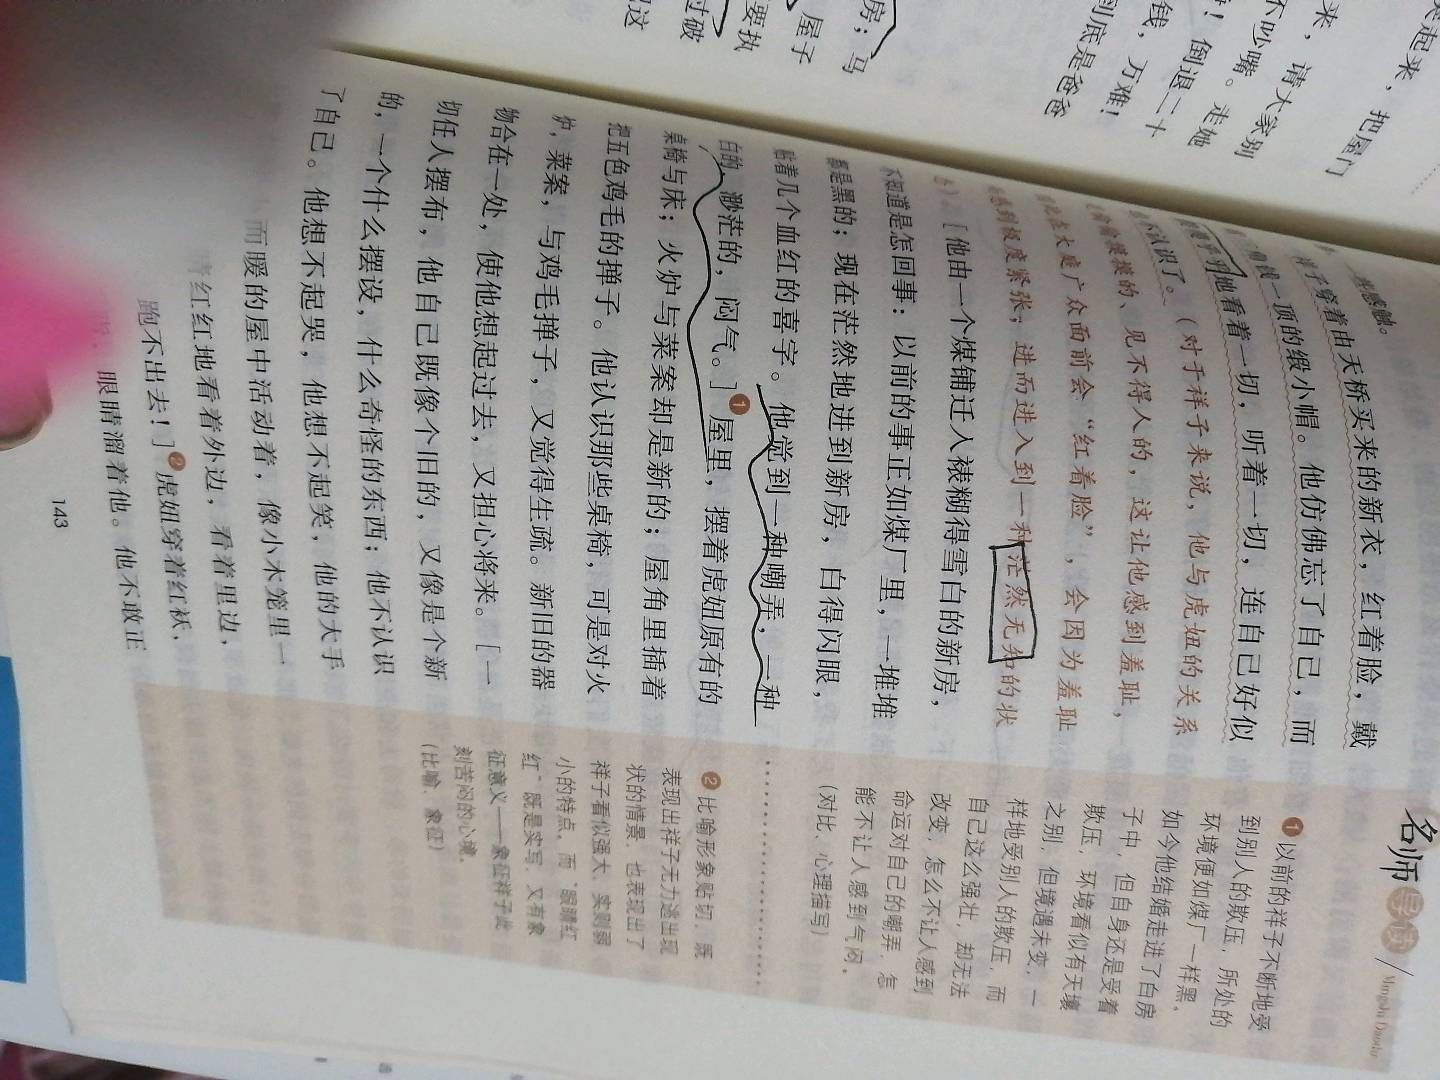 哭起来，把屋门
来，请大家别
不吵嘴。走她
！倒退二十
钱，万难！
到底是爸爸
房；马
屋子
要执
过破
这
感触。
祥子穿着由天桥买来的新衣，红着脸，戴
角钱一顶的缎小帽。他仿佛忘了自己，而
看着一切，听着一切，连自己好似
不认识了。（对于祥子来说，他与虎妞的关系
偷偷摸摸的、见不得人的，这让他感到羞耻，
在大庭广众面前会“红着脸”，会因为羞耻
感到极度紧张，进而进入到一种茫然无知的状
态）。[他由一个煤铺迁入裱糊得雪白的新房，
不知道是怎回事：以前的事正如煤厂里，一堆堆
都是黑的；现在茫然地进到新房，白得闪眼，
贴着几个血红的喜字。他觉到一种嘲弄，一种
白的，渺茫的，闷气。]❶屋里，摆着虎妞原有的
桌椅与床；火炉与菜案却是新的；屋角里插着
把五色鸡毛的掸子。他认识那些桌椅，可是对火
炉，菜案，与鸡毛掸子，又觉得生疏。新旧的器
物合在一处，使他想起过去，又担心将来。[一
切任人摆布，他自己既像个旧的，又像是个新
的，一个什么摆设，什么奇怪的东西；他不认识
了自己。他想不起哭，他想不起笑，他的大手
而暖的屋中活动着，像小木笼里一
红红地看着外边，看着里边，
跑不出去！]❷虎妞穿着红袄，
眼睛溜着他。他不敢正
143
名师导读
Mingshi Daodu
❶以前的祥子不断地受
到别人的欺压，所处的
环境便如煤厂一样黑，
如今他结婚走进了白房
子中，但自身还是受着
欺压，环境看似有天壤
之别，但境遇未变，一
样地受别人的欺压，而
自己这么强壮，却无法
改变，怎么不让人感到
命运对自己的嘲弄，怎
能不让人感到气闷。
（对比、心理描写）
❷比喻形象贴切，既
表现出祥子无力逃出现
状的情景，也表现出了
祥子看似强大，实则弱
小的特点，而“眼睛红
红”既是实写，又有象
征意义——象征祥子此
刻苦闷的心境。
（比喻、象征）